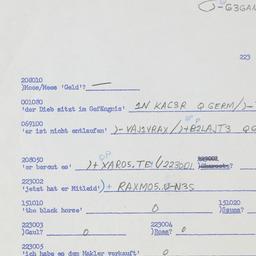 223
208010
)Moos/Mees 'Geld'?
001080
'der Dieb sitzt im Gefängnis' 1N KAC3R Q GERM/)-
069100
'er ist nicht entlaufen' )-VAJ1VRAX/)+B2LAJT3
208050
'er beraut es' )+XAR05.TE! (/223001
223002
'jetzt hat er Mitleid' )+ RAXM05.U-N3S
151010 151020
'the black horse' 0 )Gauns?
223003 223004
)Gaul? 0 )Ross? 0
223005
'ich habe es dem Makler verkauft' 0